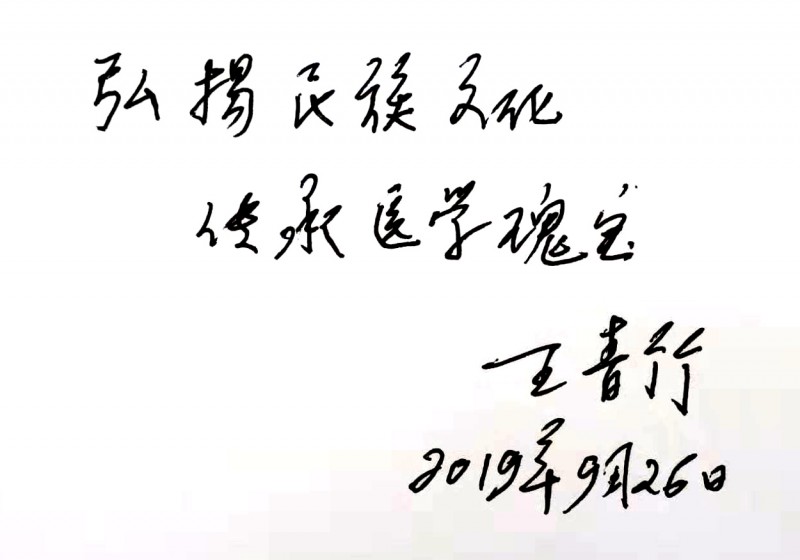 弘扬民族文化
传承医学瑰宝
王青竹
2019年9月26日